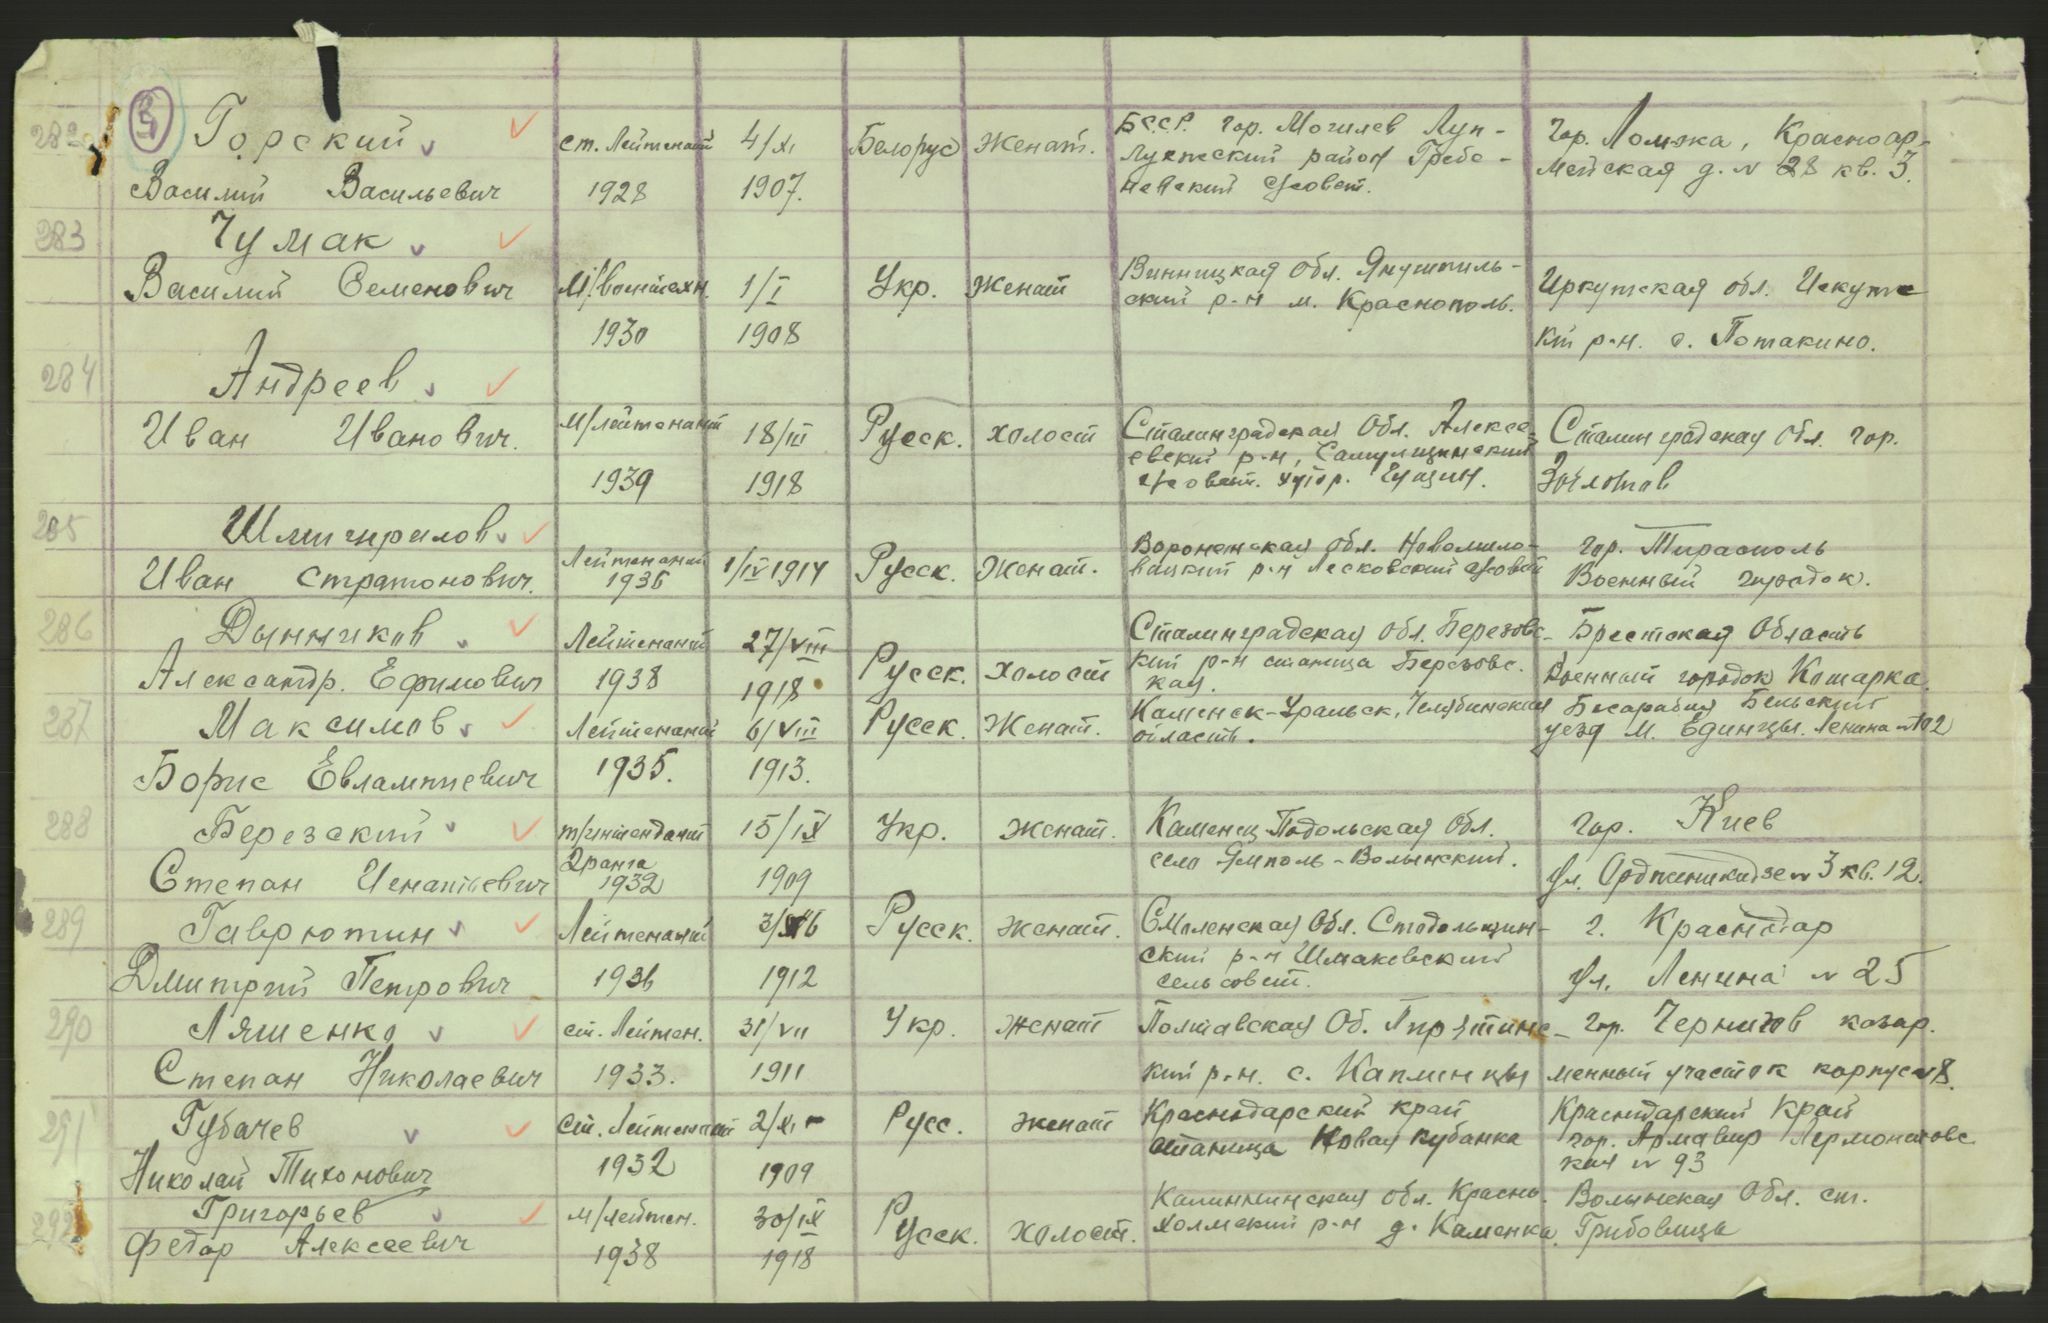 5
282 Горский ст. Лейтенант 4/XI Белорус Женат. БССР. гор. Могилев гор. Ломжа, Красноар-
Василий Васильевич 1928 1907. район мейская д. N 28 кв. 3.
283 Чумак
Василий Семенович М/воентехн. 1/I Укр. Женат Винницкая обл. Янушполь- Иркутская обл.
1930 1908 ский р-н м. Краснополь. р-н. с. Потакино.
284 Андреев
Иван Иванович. М/лейтенант 18/III Русск. холост Сталинградская Обл. Алексе- Сталинградская Обл. гор.
1939 1918 евский р-н,
285
Иван Стратонович. Лейтенант 1935 1/IV 1914 Русск. Женат. Воронежская обл. р-н Лесковский гор. Тирасполь
Военный городок.
286 Дынников Лейтенант 27/VIII Сталинградская обл. Березовс- Брестская Область
Александр. Ефимович 1938 1918 Русск. Холост кий р-н станица Березовс. Военный городок
кая.
287 Максимов Лейтенант 6/VIII Русск. Женат. Каменск-Уральск, Челябинская Бесарабия Бельский
область. уезд м. Единцы. Ленина N 102
Борис Евлампиевич 1935. 1913.
288 Березский т/интендант 15/IX Укр. женат. Каменец-Подольская Обл. гор. Киев
Степан Игнатьевич 2 ранга 1932 1909 село Ямполь-Волынский. ул. N 3 кв. 12.
289 Гаврютин Лейтенант Русск. женат. Смоленская Обл. Стодолищен- г. Краснодар
Дмитрий Петрович 1936 1912 ский р-н Шмаковский ул. Ленина N 25
сельсовет.
290 Ляшенко ст. Лейтен. 31/VII Укр. женат Полтавская Об. Пирятинс- гор. Чернигов казар.
Степан Николаевич 1933. 1911 кий р-н. с. Каплинцы менный участок корпус N 8.
291 Губачев ст. Лейтенант 2/XI Русс. женат Краснодарский край Краснодарский Край
Николай Тихонович 1932 1909 станица Новая Кубанка гор. Армавир Лермонтовс
кая N 93
292 Григорьев м/лейтен. 30/IX Русск. холост. Калининская обл. Красно- Волынская Обл. ст.
Федор Алексеевич 1938 1918 холмский р-н д. Каменка. Грибовица